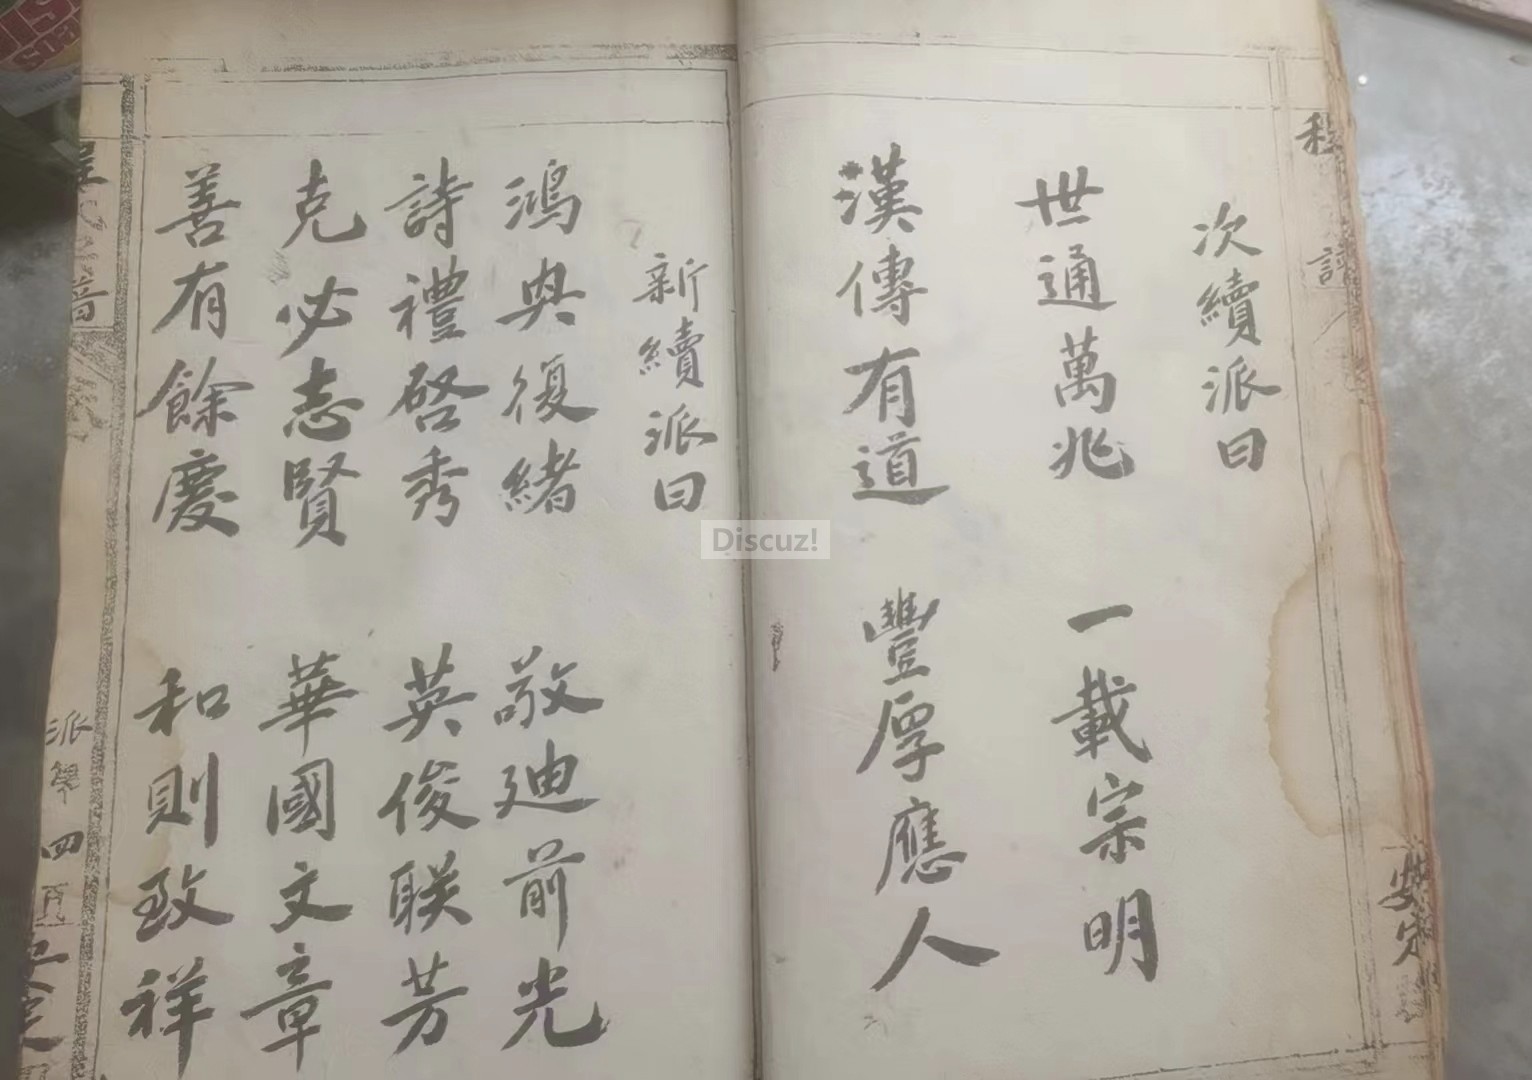 次續派曰
世通萬兆 一載宗明
漢傳有道 豐厚應人
新續派曰
鴻興復緒 敬迪前光
詩禮啓秀 英俊联芳
克必志賢 華國文章
善有餘慶 和則致祥
派 四
Discuz!